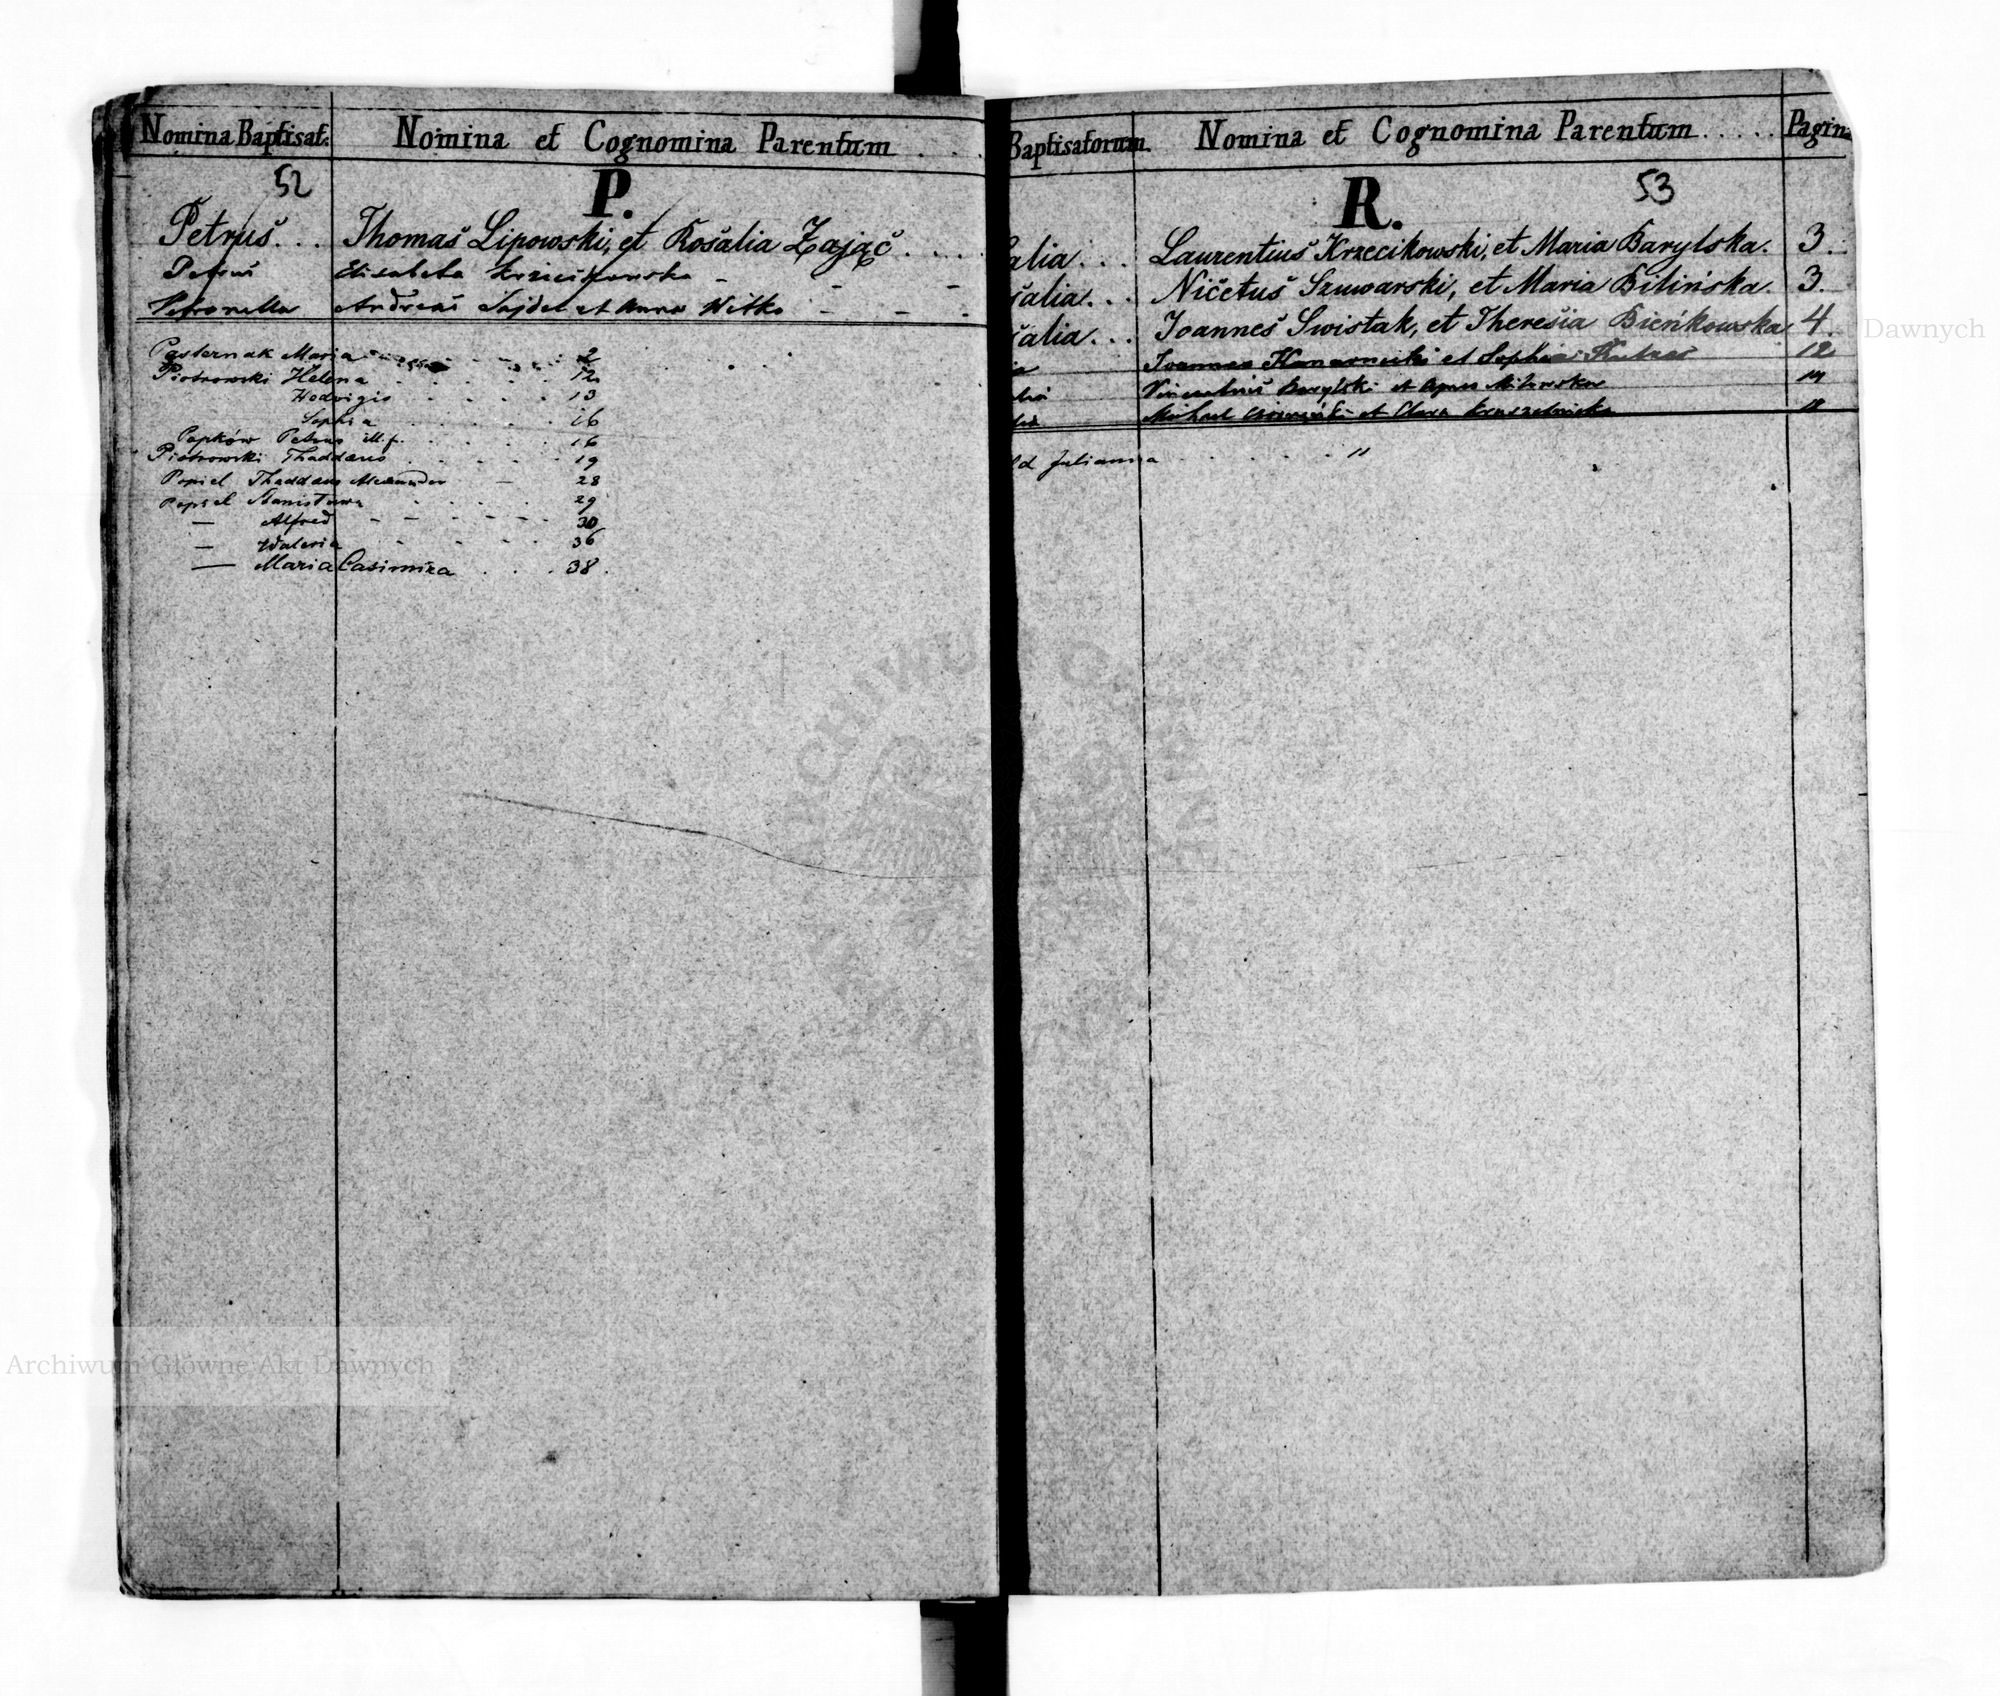 Nomina Baptisat: Nomina et Cognomina Parentum . . .
52
P.
Petrus. . . Thomas Lipowski, et Rosalia Zając . . . .
Petrus Elisabeta Krzecikowska - - -
Petronella Andreas Sajdel et Anna Witko - - -
Pasternak Maria 2
Piotrowski Helena 12
Hedvigis 13
Sophia 16
Popków Petrus M. f. 16
Piotrowski Thaddæus 19
Popiel Thaddæus Alexander — 28
Popiel Stanislawa 29
— Alfred 30
— Waleria 36
— Maria Casimira . . . 38.
Baptisatorum Nomina et Cognomina Parentum . . . . . Pagina
R. 53
alia. . . Laurentius Krzecikowski, et Maria Barylska. 3.
salia. . . Nicetus Szuwarski, et Maria Bilińska. 3.
salia. . . Joannes Swistak, et Theresia Bieńkowska 4.
Joannes et Sophia 12
Vincentius Barylski et Agnes 14
Michael et Clara Kruszelnicka 18
ld Julianna . . . . . 11
Akt Dawnych
ARCHIWUM GŁÓWNE AKT DAWNYCH
Archiwum Główne Akt Dawnych